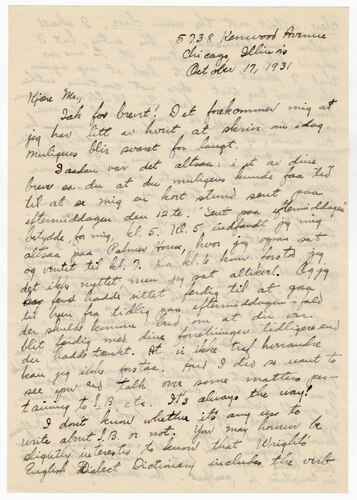 5738 Kenwood Avenue
Chicago, Illinois
October 17, 1931
Kjære Mr.,
Tak for brevet! Det forekommer mig at
jeg har litt av hvert, at skrive om idag.
Muligens blir svaret for langt.
I var det altsaa: i et av dine
breve sa du at du muligens kunde faa tid
til at se mig en kort stund sent paa
eftermiddagen den 12te. "Sent paa eftermiddagen"
betydde, for mig, kl. 5. Kl. 5, indfandt jeg mig
altsaa paa Palmer House, hvor jeg ogsaa sat
og ventet til kl. 7. Fra kl. 6 kunde jeg
det ikke nyttet, men jeg sat allikevel. Og jeg
hadde sittet færdig til at gaa
til byen fra tidlig paa eftermiddagen ifald
der skulde komme bud om at du var
blit færdig med dine forretninger tidligere end
du hadde tænkt. At vi ikke traf hverandre
kan jeg ikke forstaa. And I did so want to
see you and talk over some matters per-
taining to L.B. etc. It's always the way!
I don't know whether it's any use to
write about L.B. or not. You may however be
slightly interested to know that Wright's
English Dialect Dictionary includes the verb